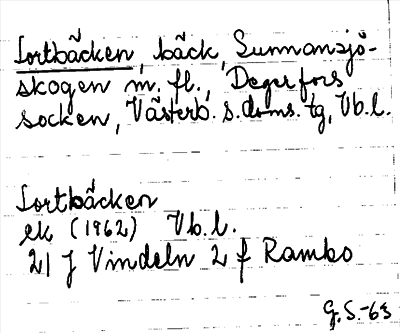 Lortbäcken, bäck, Sunnansjö-
skogen m. fl., Degerfors
socken, Västerb. s. doms. tg, Vb. l.
Lortbäcken
ek (1962) Vb. l.
21 J Vindeln 2 f Rambo
G. S. -63